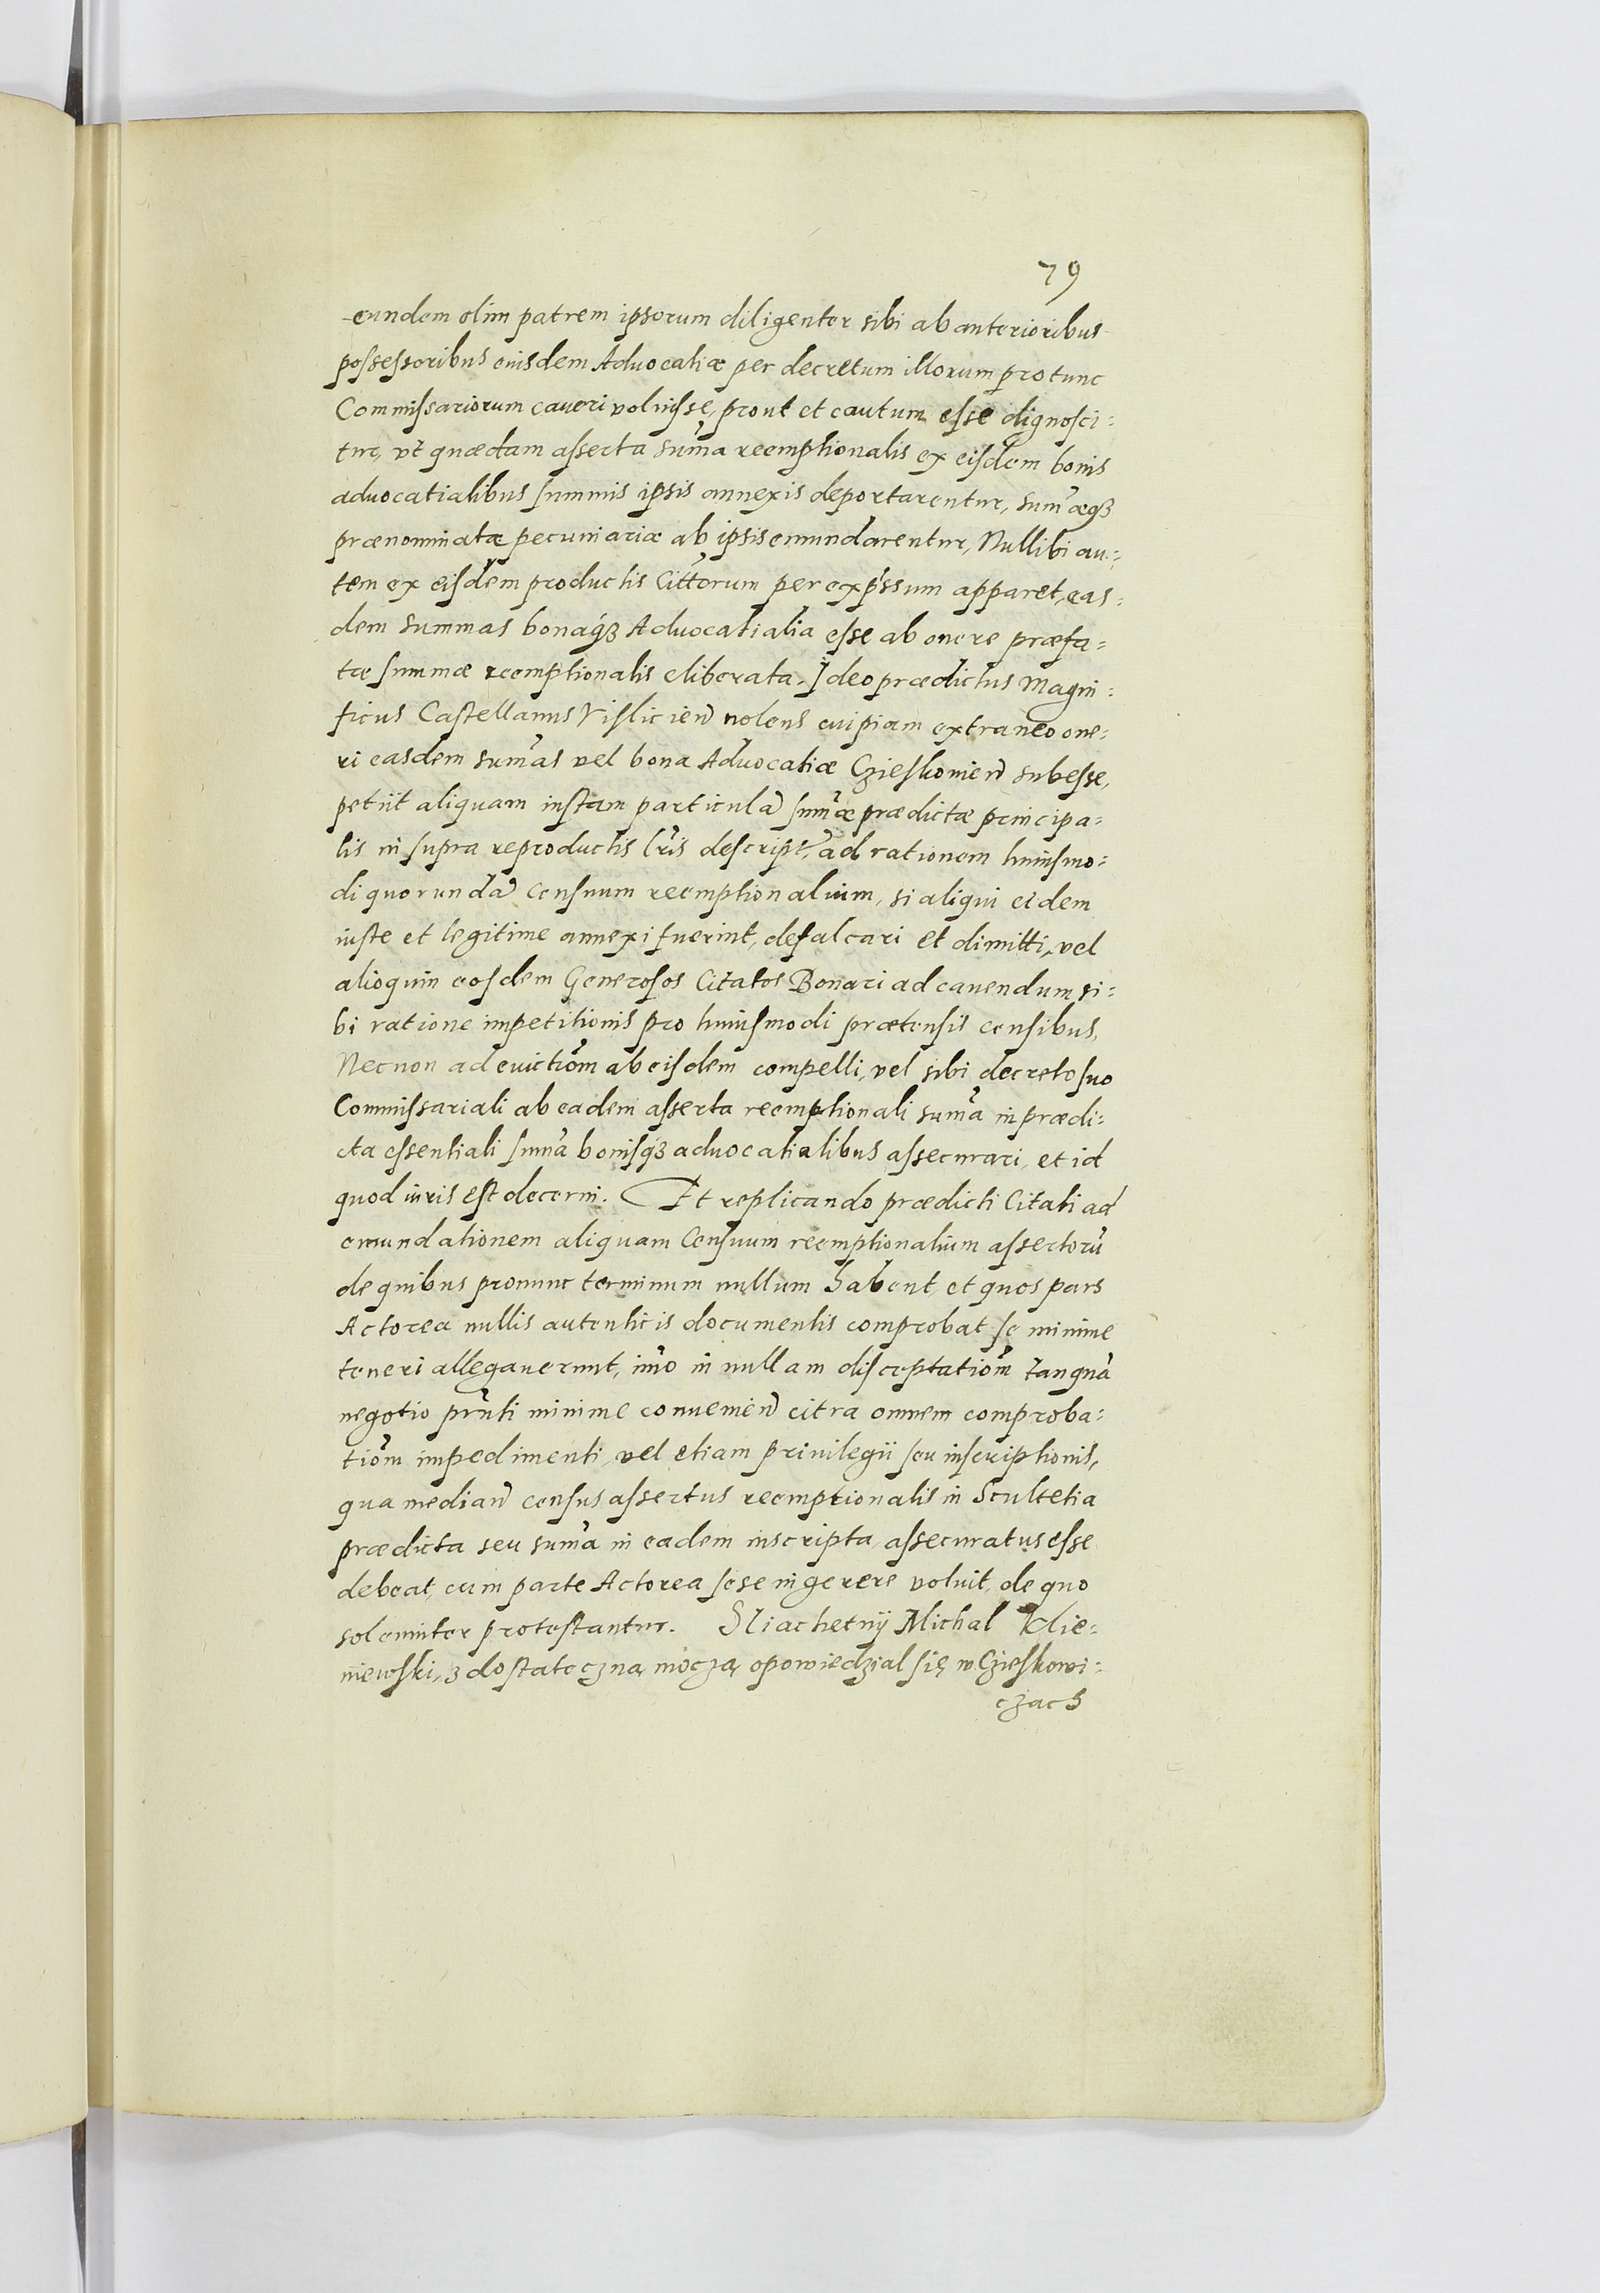 79
eundem olim patrem ipsorum diligenter sibi ab anterioribus
poſseſsoribus eiusdem Aduocatiæ per decretum illorum pro tunc
Commiſsariorum caueri voluiſse, prout et cautum eſse dignoſci:
tur, vt quædam aſserta sum̃a reemptionalis ex eiſdem bonis
aduocatialibus ſummis ipsis annexis deportarentur, sum̃æq̃ꝫ
prænominatæ pecuniariæ ab ipsis emundarentur, Nullibi au:
tem ex eiſdem productis Citt̃orum per exp̃ssum apparet, eas:
dem summas bonaq̃ꝫ Aduocatialia eſse ab onere præfa:
tæ ſummæ reemptionalis eliberata. Ideo prædictus Magni:
ficus Caſtellanus Viſlicień nolens cuipiam extraneo one:
ri easdem sum̃as vel bona Aduocatiæ Czieſkonień subeſse,
petiit aliquam iuſtam particulã ſum̃æ prædictæ principa:
lis in ſupra reproductis l̃ris deſcript̃, ad rationem huiuſmo:
di quorundã Cenſuum reemptionalium, si aliqui eidem
iuſte et legitime annexi fuerint, defalcari et dimitti, vel
alioquin eoſdem Generoſos Citatos Bonari ad cauendum si:
bi ratione impetitionis pro huiuſmodi prætensis censibus,
Necnon ad euictiom̃ ab eiſdem compelli, vel sibi decreto ſuo
Commiſsariali ab eadem aſserta reemptionali sum̃a in prædi:
cta eſsentiali ſum̃a boniſq̃ꝫ aduocatialibus aſsecurari, et id
quod iuris eſt decerni. Et replicando prædicti Citati ad
emundationem aliquam Cenſuum reemptionalium aſsertorũ
de quibus pronunc terminum nullum habent, et quos pars
Actorea nullis autenticis documentis comprobat ſe minime
teneri allegauerunt, im̃o in nullam diſceptatiom̃ tanquã
negotio pr̃nti minime conuenień citra omnem comproba:
tiom̃ impedimenti, vel etiam priuilegii ſeu inſcriptionis,
qua mediań cenſus aſsertus reemptionalis in Scultetia
prædicta seu sum̃a in eadem inscripta, aſsecuratus eſse
debeat, cum parte Actorea ſese ingerere voluit, de quo
solemniter proteſtantur. Sliachetnÿ Michal Klie:
niewſki, z doſtateczną moczą opowiedzial ſię w Czieſkowi:
czach